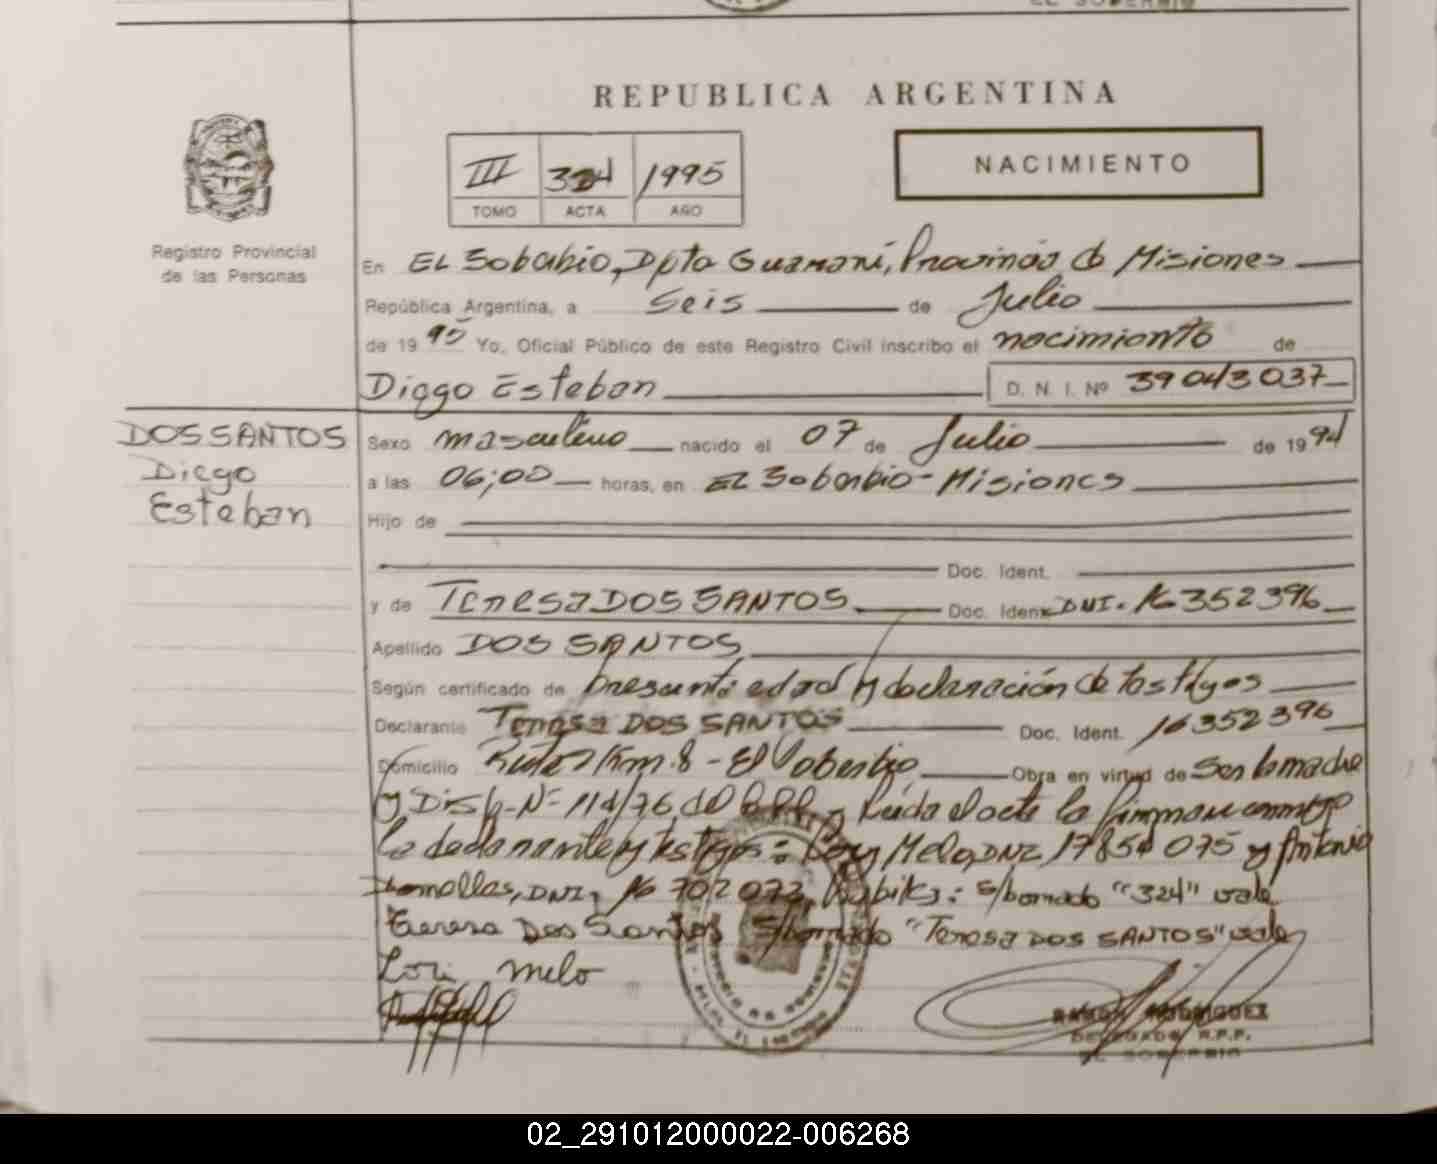 REPUBLICA ARGENTINA
III 324 1995
TOMO ACTA AÑO
NACIMIENTO
Registro Provincial
de las Personas
En EL Soberbio, Dpto Guaraní, Provincia de Misiones
República Argentina, a Seis de Julio
de 1995 Yo, Oficial Público de este Registro Civil inscribo el nacimiento de
Diego Esteban D. N. I. Nº 39043037
DOS SANTOS
Diego
Esteban
Sexo masculino nacido el 07 de Julio de 1994
a las 06;00 horas, en EL Soberbio - Misiones
Hijo de
Doc. Ident.
y de Teresa DOS SANTOS Doc. Ident. DNI. 16352396
Apellido DOS SANTOS
Según certificado de presunta edad y declaración de testigos
Declarante Teresa DOS SANTOS Doc. Ident. 16352396
Domicilio Ruta 2 Km. 8 - El Soberbio Obra en virtud de Ser la madre
y Disp. Nº 114/76 del R.P.P. y leída el acta la firman conmigo
la declarante y testigos: Lory Melo, DNI 17854075 y Antonio
DNI, 16 702 073 s/borrado "324" vale
Teresa Dos Santos s/borrado "Teresa DOS SANTOS" vale
Lori Melo
RAMON RODRIGUEZ
DELEGADO R.P.P.
EL SOBERBIO
02_291012000022-006268